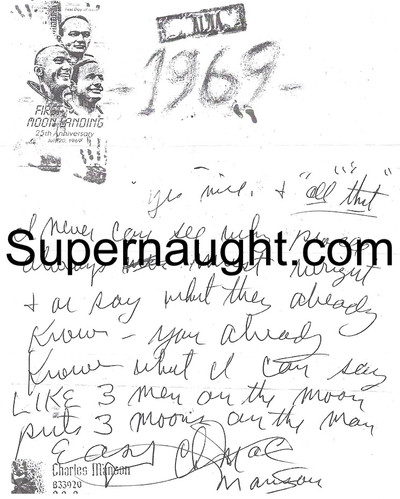 1969
FIRST
MOON LANDING
25th Anniversary
Jul 20, 1969
yes & "all that"
I never can see why
Supernaught.com
always must
& or say what they already
Know - you already
Know what I can say
LIKE 3 men on the moon
puts 3 moons on the man
Easy
Charles Manson
Manson
B33920